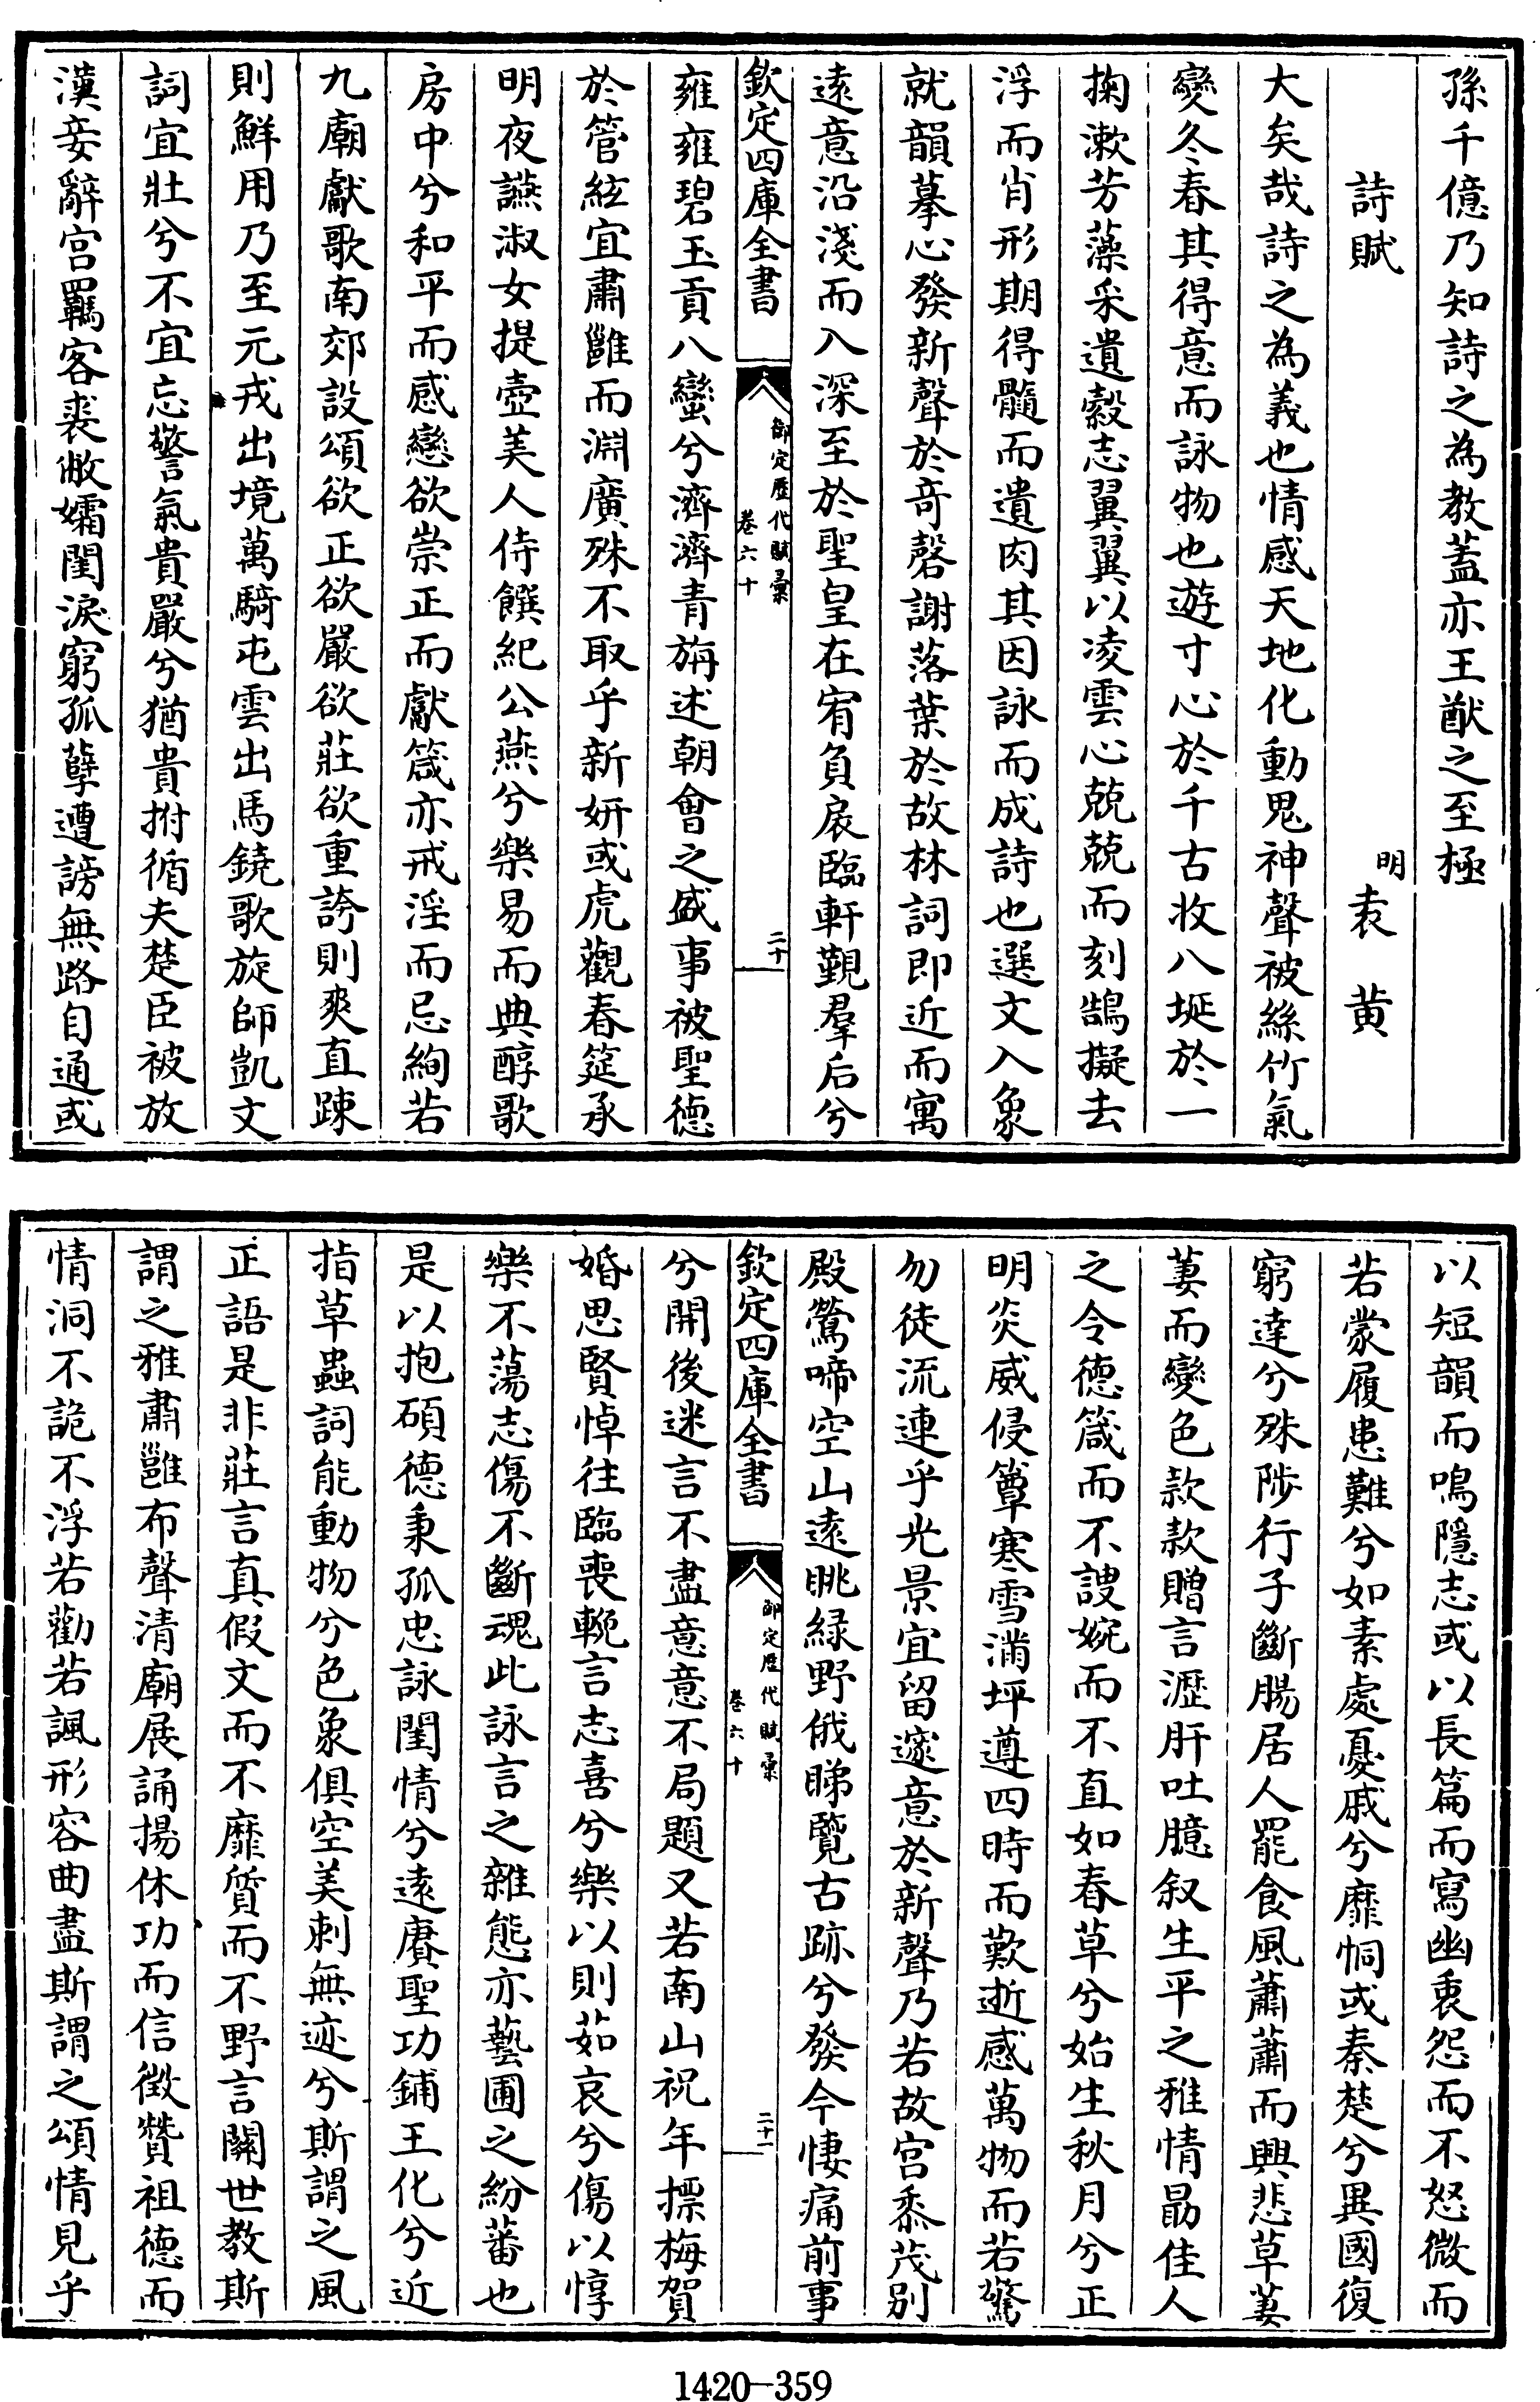 孫千億乃知詩之為教蓋亦王猷之至極
詩賦
明
袁黃
大矣哉詩之為義也情感天地化動鬼神聲被絲竹氣
變冬春其得意而詠物也遊寸心於千古收八埏於一
掬漱芳藻采遺縠志翼翼以凌雲心兢兢而刻鵠擬去
浮而肖形期得髓而遺肉其因詠而成詩也選文入象
就韻摹心發新聲於奇磬謝落葉於故林詞即近而寓
遠意沿淺而入深至於聖皇在宥負扆臨軒覲羣后兮
欽定四庫全書
御定歷代賦彙
卷六十
二十
雍雍碧玉貢八蠻兮濟濟青旃述朝會之盛事被聖德
於管絃宜肅雝而淵廣殊不取乎新妍或虎觀春筵承
明夜讌淑女提壺美人侍饌紀公燕兮樂易而典醇歌
房中兮和平而感戀欲崇正而獻箴亦戒淫而忌絢若
九廟獻歌南郊設頌欲正欲嚴欲莊欲重誇則爽直踈
則鮮用乃至元戎出境萬騎屯雲出馬鐃歌旋師凱文
詞宜壯兮不宜忘警氣貴嚴兮猶貴拊循夫楚臣被放
漢妾辭宮羈客裘敝孀閨淚窮孤孽遭謗無路自通或
以短韻而鳴隱志或以長篇而寫幽衷怨而不怒微而
若蒙履患難兮如素處憂戚兮靡恫或秦楚兮異國復
窮達兮殊陟行子斷腸居人罷食風蕭蕭而興悲草萋
萋而變色款款贈言瀝肝吐臆叙生平之雅情勗佳人
之令德箴而不諛婉而不直如春草兮始生秋月兮正
明炎威侵簟寒雪滿坪遵四時而歎逝感萬物而若驚
勿徒流連乎光景宜留邃意於新聲乃若故宮黍茂別
殿鶯啼空山遠眺緑野俄睇覽古跡兮發今悽痛前事
欽定四庫全書
御定歷代賦彙
卷六十
二十一
兮開後迷言不盡意意不局題又若南山祝年摽梅賀
婚思賢悼往臨喪輓言志喜兮樂以則茹哀兮傷以惇
樂不蕩志傷不斷魂此詠言之雜態亦藝圃之紛蕃也
是以抱碩德秉孤忠詠閨情兮遠賡聖功鋪王化兮近
指草蟲詞能動物兮色象俱空美刺無迹兮斯謂之風
正語是非莊言真假文而不靡質而不野言關世教斯
謂之雅肅雝布聲清廟展誦揚休功而信徵贊祖德而
情洞不詭不浮若勸若諷形容曲盡斯謂之頌情見乎
1420-359